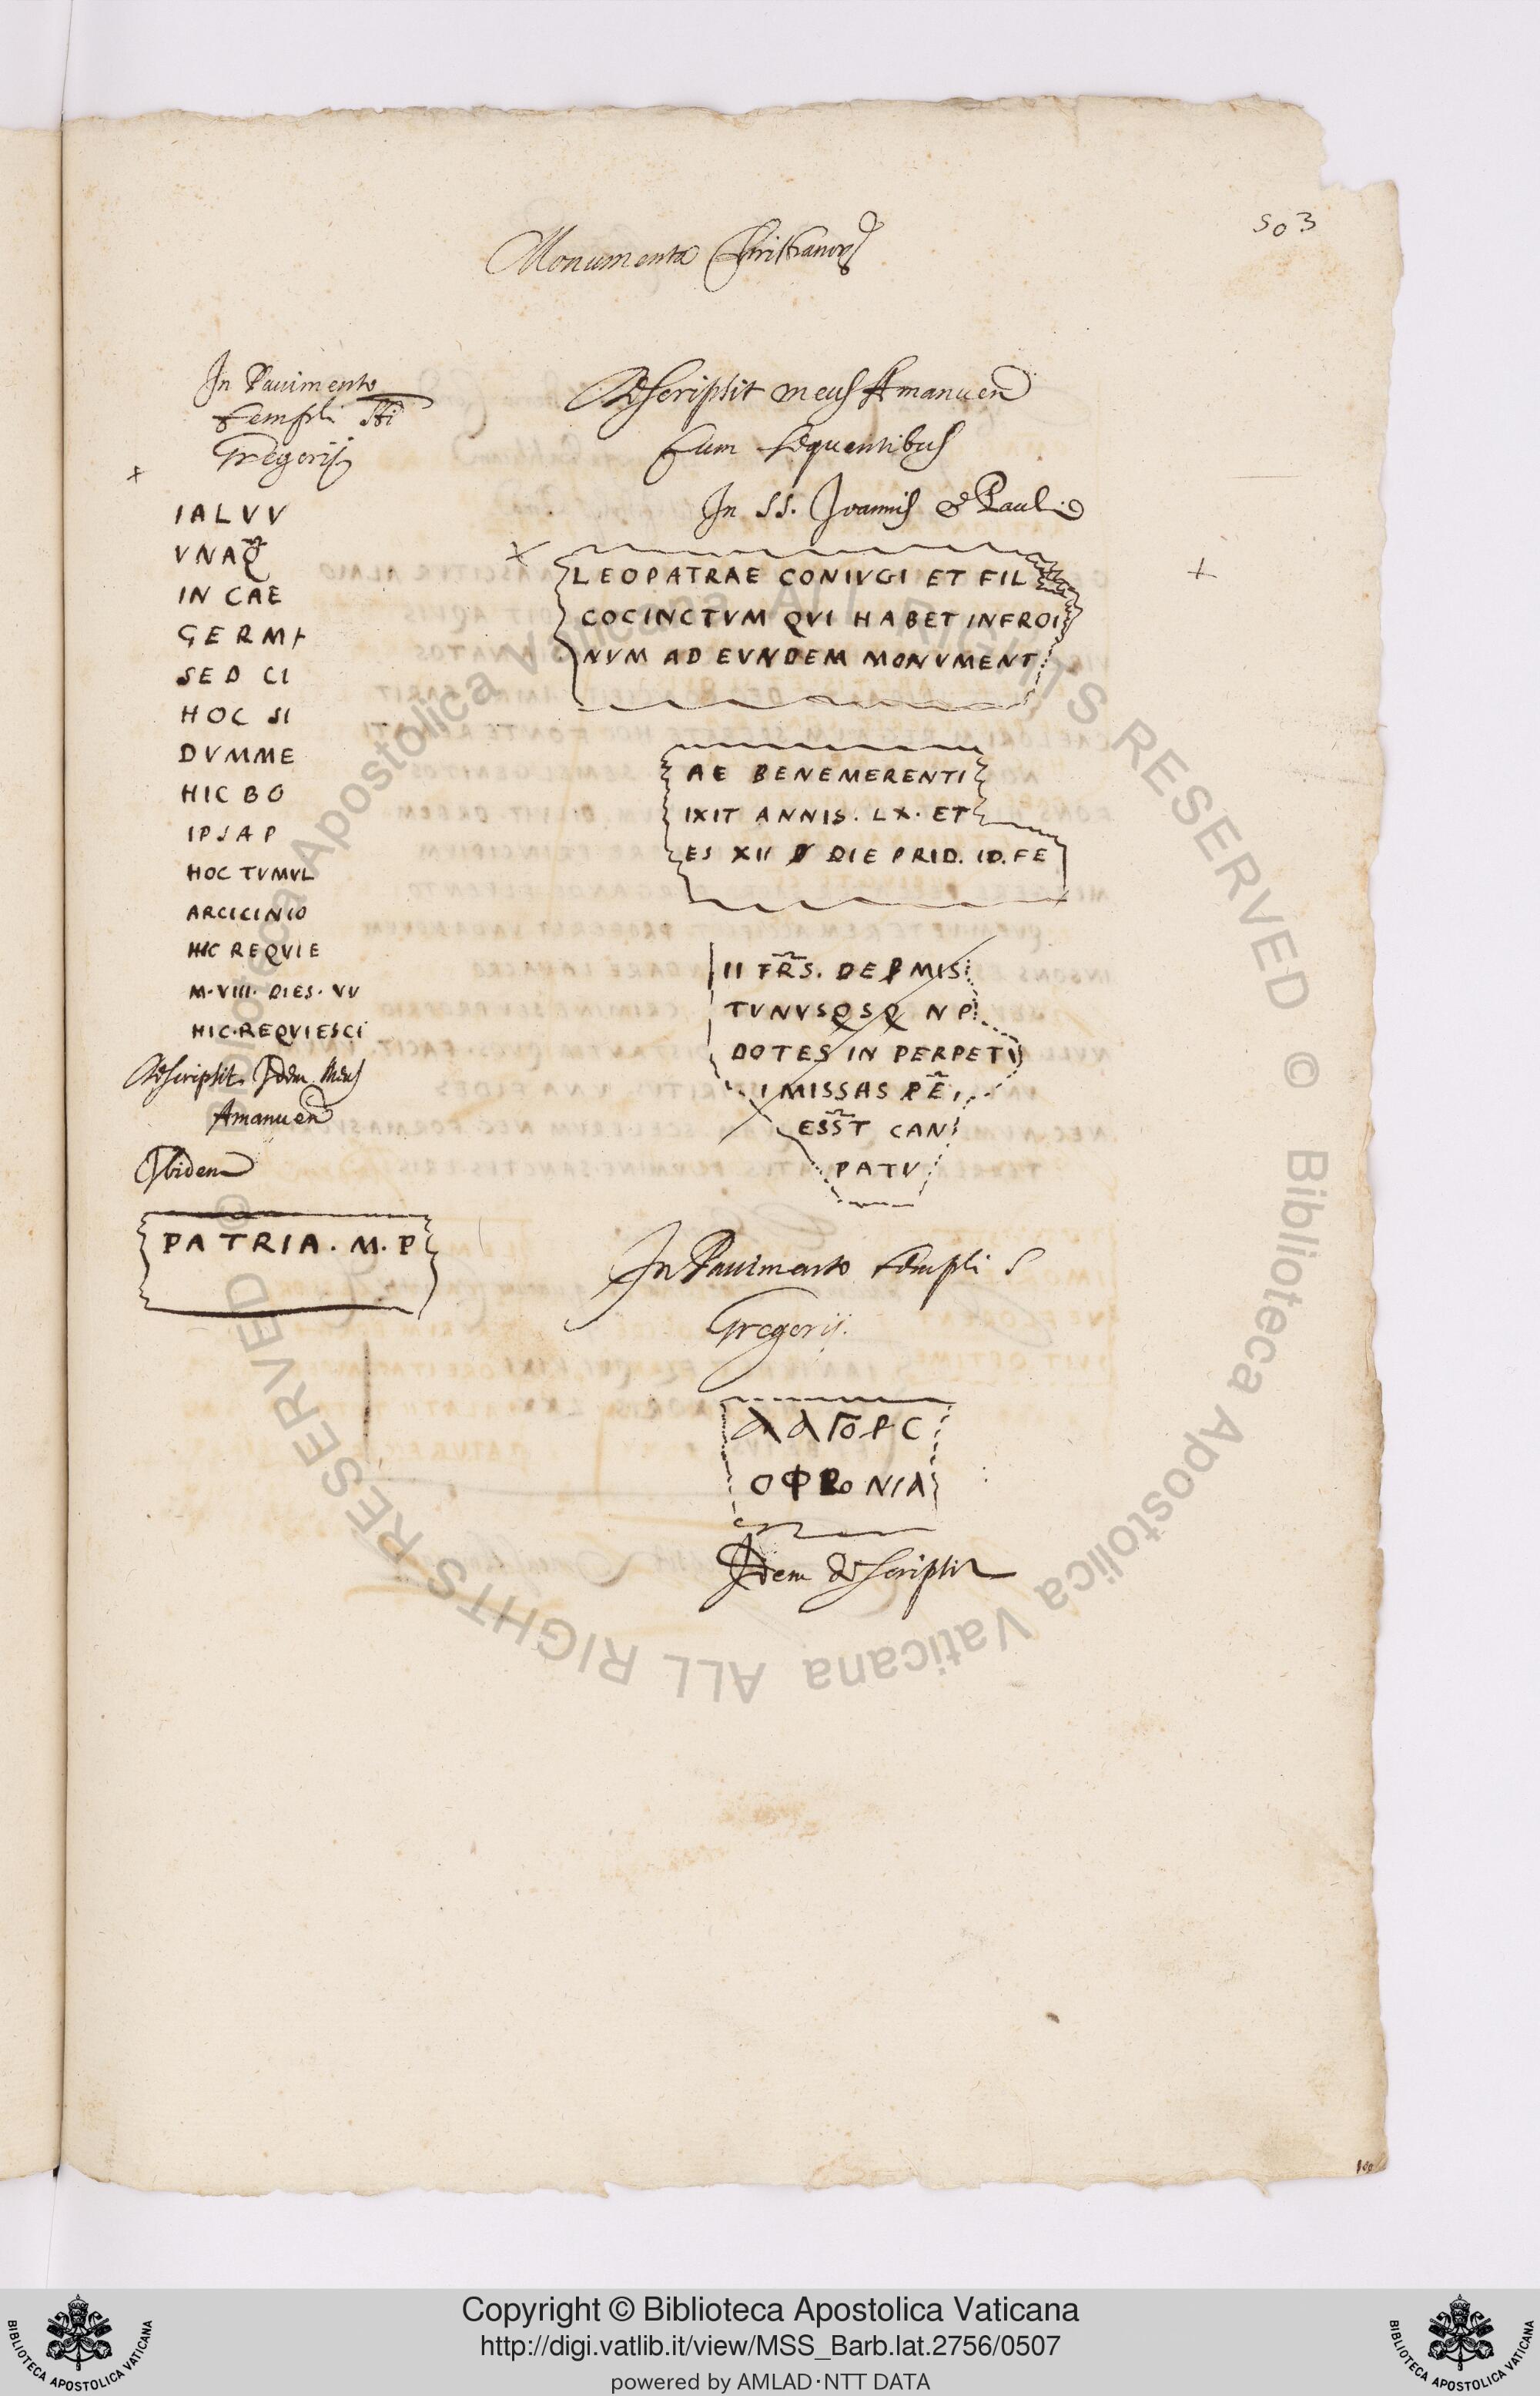 503
Monumenta Christianorꝝ
In Pauimento
templi Sti
Gregorij
+
IALVV
VNAQ̃
IN CAE
GERMA
SED CI
HOC SI
DVMME
HIC BO
IPSAP
HOC TVMVL
ARCICINIO
HIC REQVIE
M·VIII· DIES· VV
HIC·REQVIESCI
descripsit Idem Meus
Amanuen
Ibidem
PATRIA . M. P
Descripsit meus Amanuen
Cum sequentibus
In SS. Joannis & Pauli
LEOPATRAE CONIVGI ET FIL
COCINCTVM QVI HABET INFROI
NVM AD EVNDEM MONVMENT
AE BENEMERENTI
IXIT ANNIS. LX. ET
ES XII DIE PRID. ID. FE
II FR̃S. DEPMIS
TVNVSQSQ NP
DOTES IN PERPETV
I MISSAS PẼ
ESS̃T CAN
PATV
In Pauimento templi S
Gregorij.
ΑΔΓΟΡС
ΟΦRΟΝΙΑ
Idem descripsit
Copyright © Biblioteca Apostolica Vaticana
http://digi.vatlib.it/view/MSS_Barb.lat.2756/0507
powered by AMLAD·NTT DATA